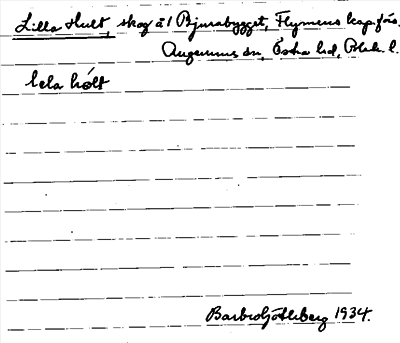 Lilla Hult, skog å 1 Bjurabygget, Flymens kap. förs.
Augerums sn, Östra hd, Blek. l.
lela hólt
Barbro Götherberg 1934.